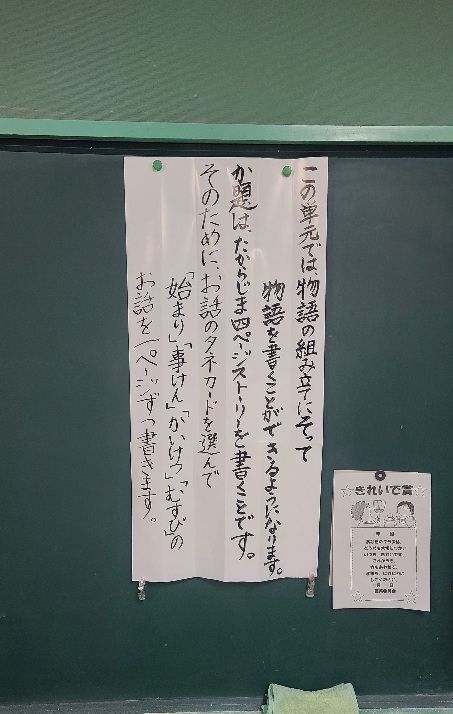 この単元では、物語の組み立てにそって
物語を書くことができるようになります。
か題は、たからじま四ページストーリーを書くことです。
そのために、お話のタネカードを選んで
「始まり」「事けん」「かいけつ」「むすび」の
お話を一ページずつ書きます。
きれいで賞